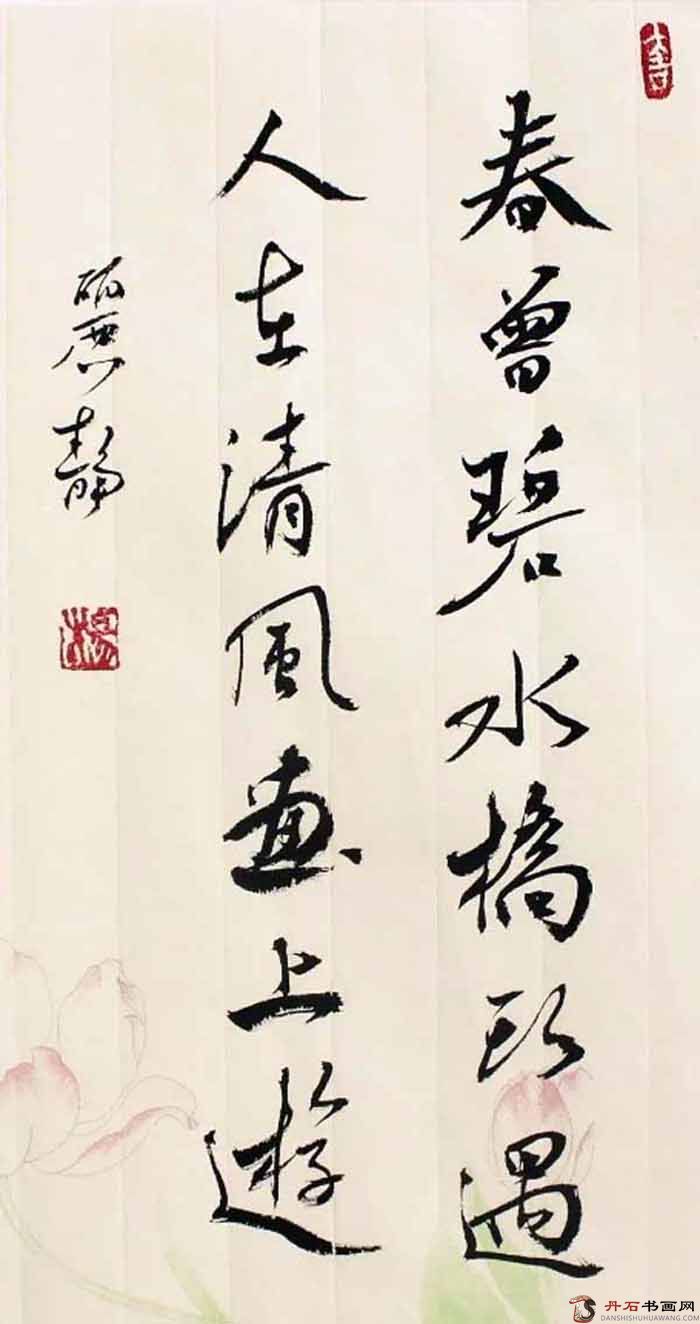 春曾碧水橋頭遇
人在清風畫上遊
靜
楊
丹石书画网
DANSHISHUHUAWANG.COM